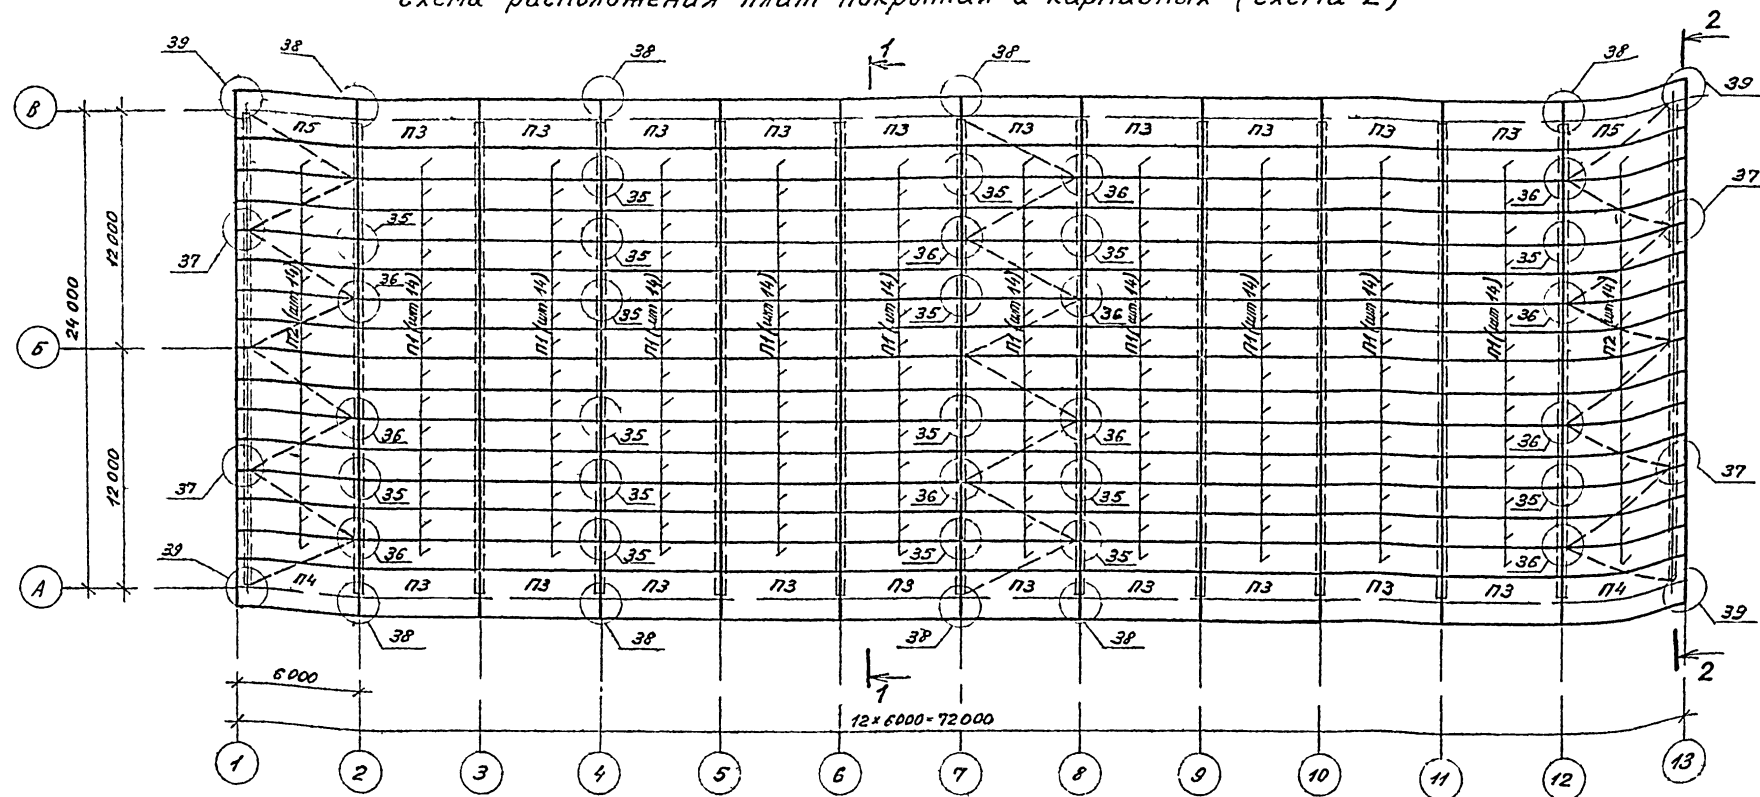 схема расположения плит покрытия и карнизных (схема 2)
39 38 38 1 38 38 2
39
В
П5 П3 П3 П3 П3 П3 П3 П3 П3 П3 П3 П5
35 35 36 36 37
35 35 36 35 35
37
36 35 35 36 36
12 000
24 000
12 000
П2 (шт 14) П1 (шт 14) П1 (шт 14) П1 (шт 14) П1 (шт 14) П1 (шт 14) П1 (шт 14) П1 (шт 14) П1 (шт 14) П1 (шт 14) П1 (шт 14) П2 (шт 14)
Б
36 35 35 36 36
37 35 35 36 35 35 37
39 36 35 35 35 36
А
П4 П3 П3 П3 П3 П3 П3 П3 П3 П3 П3 П4
39
38 38 38 38
6000 1 2
12×6000=72000
1 2 3 4 5 6 7 8 9 10 11 12 13